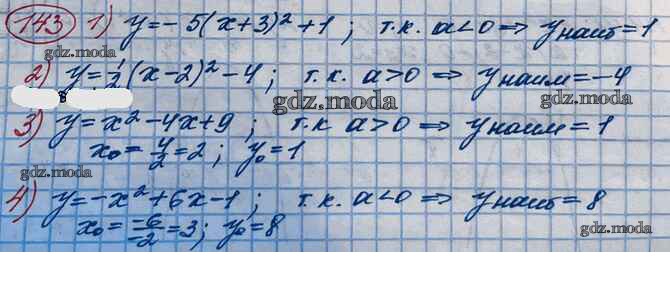 143 1) y=-5(x+3)²+1; т.к. a<0 ⇒ yнаиб=1
2) y=1/2(x-2)²-4; т.к. a>0 ⇒ yнаим=-4
gdz.moda
gdz.moda gdz.moda
3) y=x²-4x+9; т.к a>0 ⇒ yнаим=1
x₀=4/2=2; y₀=1
gdz.moda
4) y=-x²+6x-1; т.к. a<0 ⇒ yнаиб=8
x₀=-6/-2=3; y₀=8
gdz.moda gdz.moda